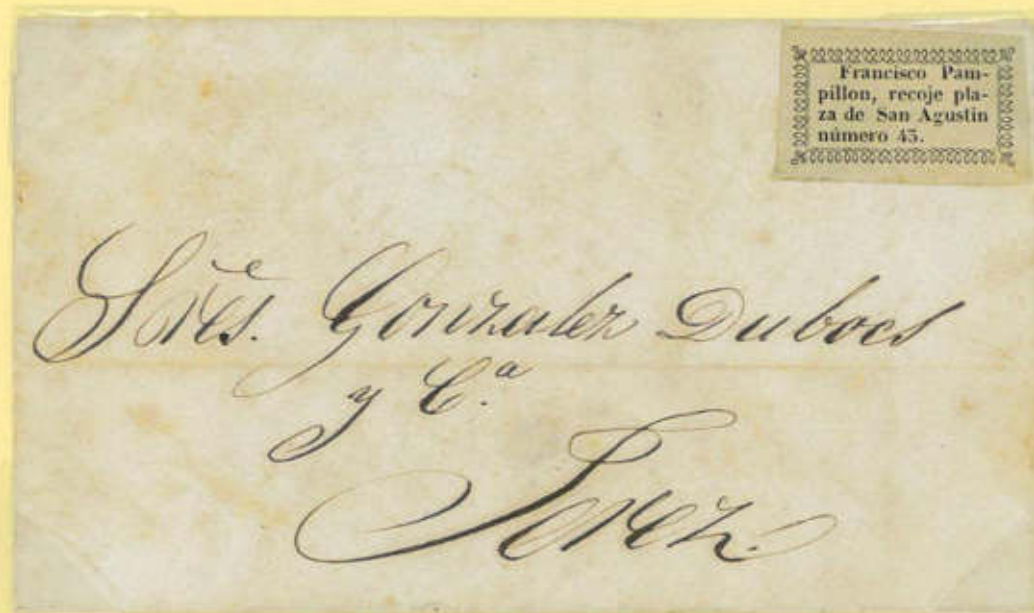 Francisco Pam-
pillon, recoje pla-
za de San Agustin
número 43.
Sres. Gonzalez Dubocs
y C.ª
Jerez.